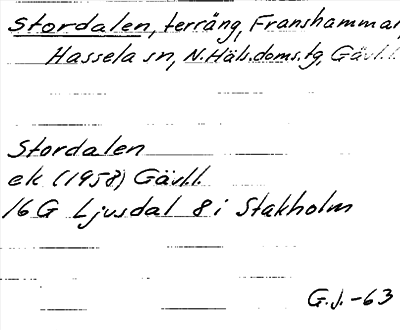 Stordalen, terräng, Franshammar,
Hassela sn, N.Häls.doms.tg, Gävl.l.
Stordalen
ek (1958) Gävl.l.
16 G Ljusdal 8 i Stakholm
G.J. -63